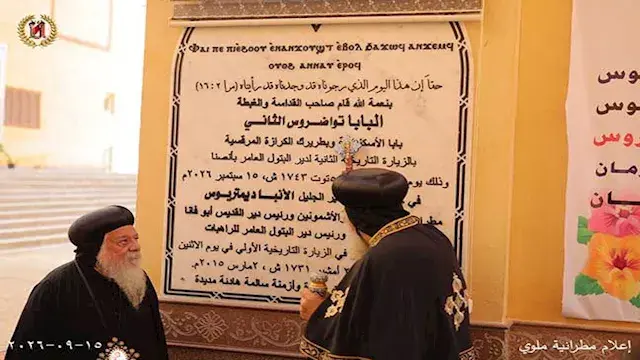 Ⲫⲁⲓ ⲡⲉ ⲡⲓⲉϩⲟⲟⲩ ⲉⲛⲁⲛϫⲟⲩϣⲧ ⲉⲃⲟⲗ ϧⲁϫⲱϥ ⲁⲛϫⲉⲙϥ
ⲟⲩⲟϩ ⲁⲛⲛⲁⲩ ⲉⲣⲟϥ
حقاً إن هذا اليوم الذي رجوناه قد وجدناه قد رأيناه (مرا ٢ : ١٦)
بنعمة الله قام صاحب القداسة والغبطة
البابا تواضروس الثاني
بابا الأسكندرية وبطريرك الكرازة المرقسية
بالزيارة التاريخية الثانية لدير البتول العامر بأنصنا
وذلك توت ١٧٤٣ ش، ١٥ سبتمبر ٢٠٢٦م
الجليل الأنبا ديمتريوس
والأشمونين ورئيس دير القديس أبو فانا
ورئيس دير البتول العامر للراهبات
في الزيارة التاريخية الأولي في يوم الاثنين
أمشير ١٧٣١ ش، ٢ مارس ٢٠١٥م
وأزمنة سالمة هادئة مديدة
٢٠٢٦-٠٩-١٥
اعلام مطرانية ملوي